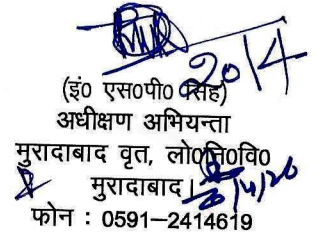 20/4
(इं० एस०पी० सिंह)
अधीक्षण अभियन्ता
मुरादाबाद वृत, लो०नि०वि०
मुरादाबाद।
फोन : 0591–2414619